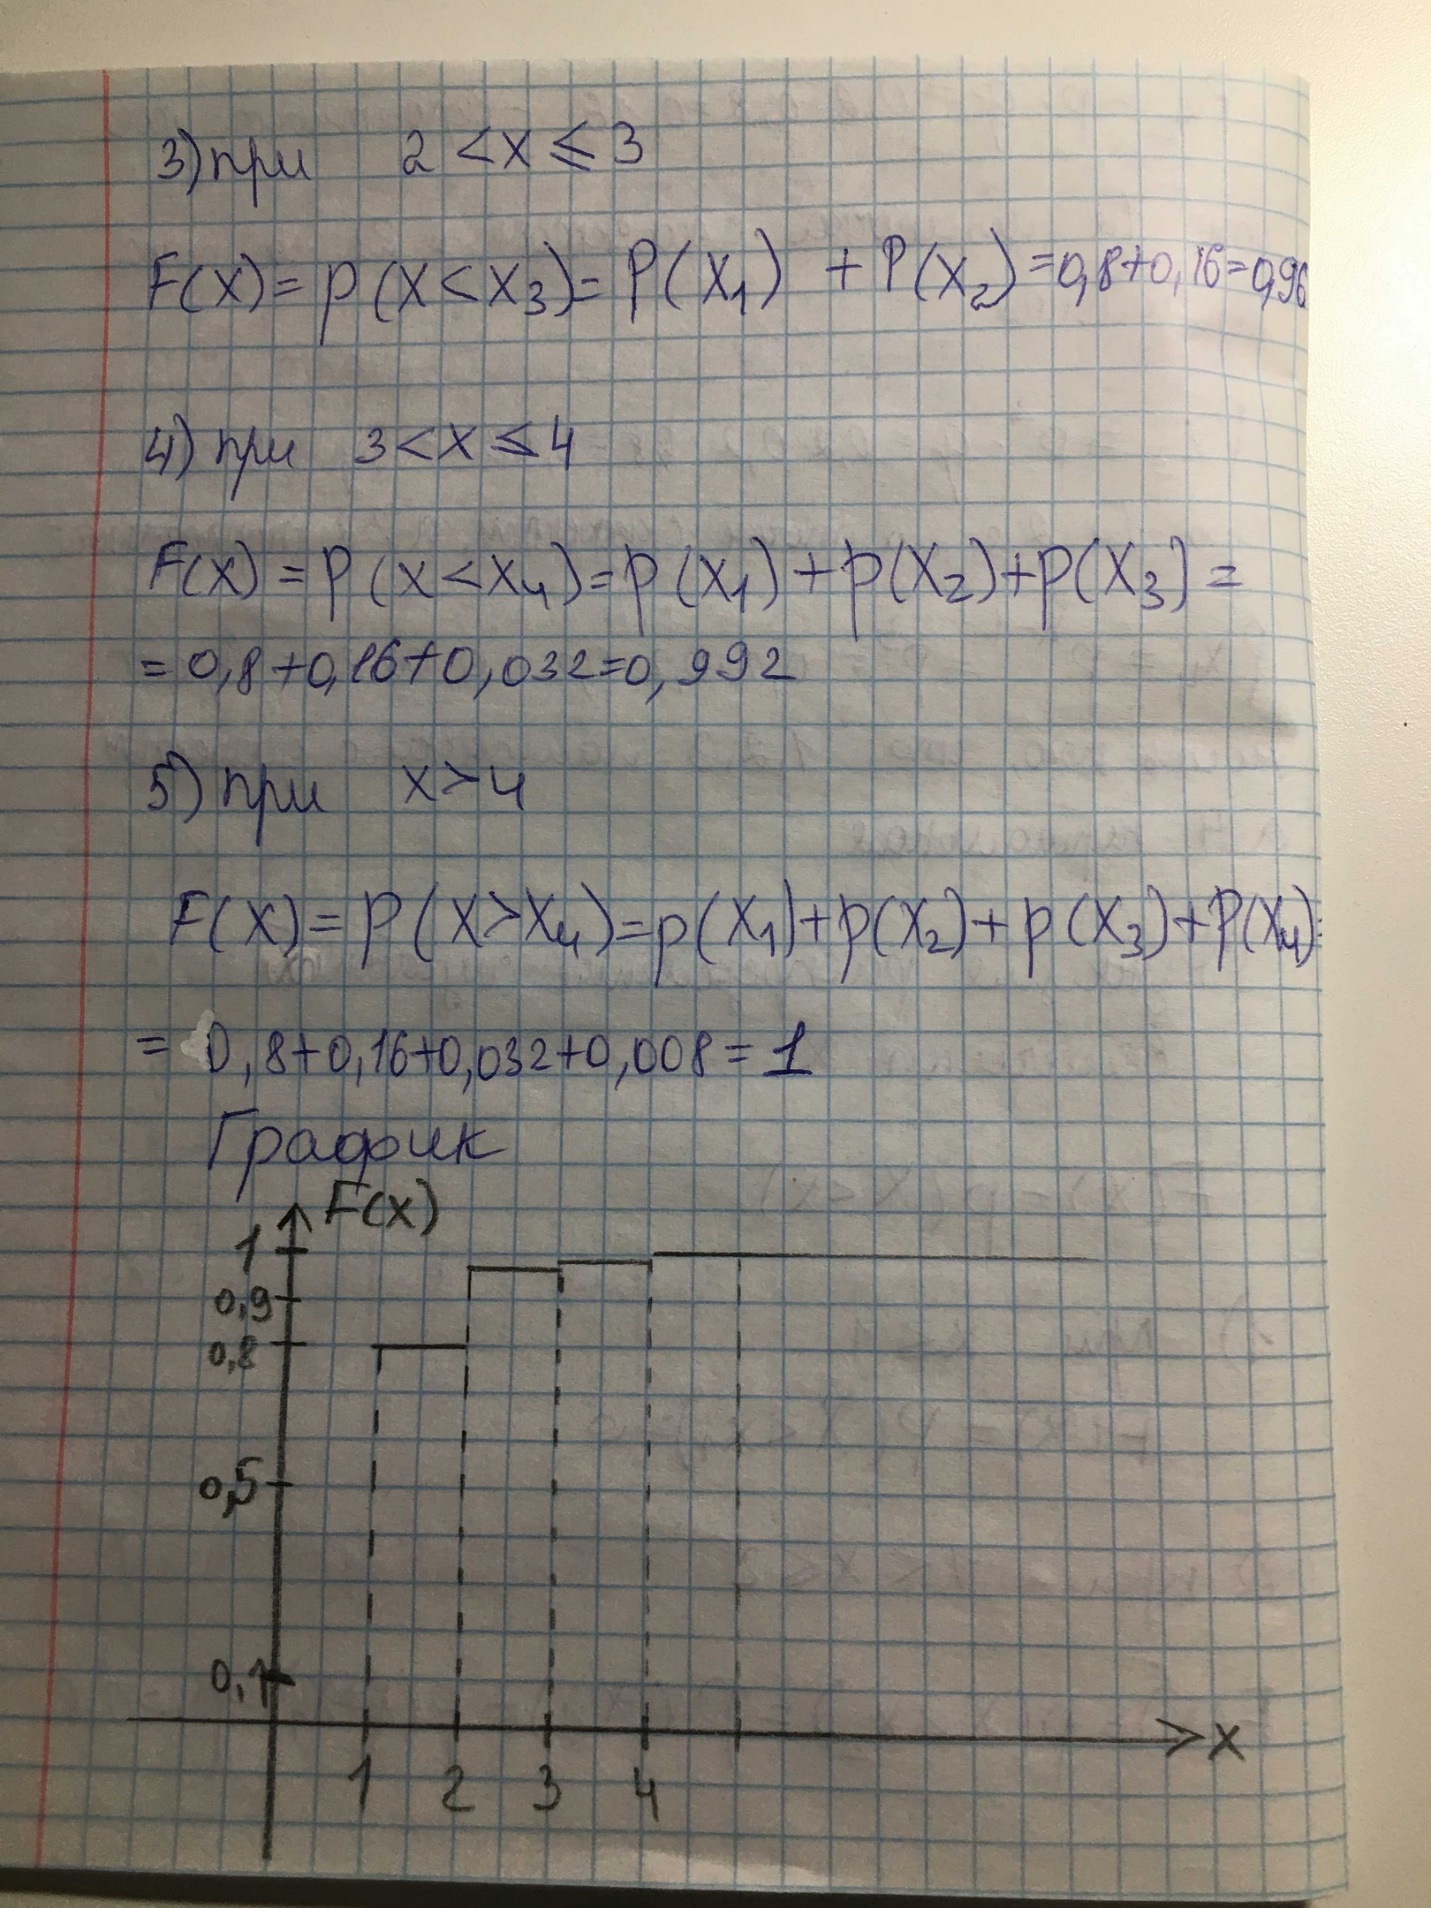 3) при 2 < x ≤ 3
F(x) = p(x < x₃) = P(x₁) + P(x₂) = 0,8+0,16=0,96
4) при 3 < x ≤ 4
F(x) = p(x < x₄) = p(x₁) + p(x₂) + p(x₃) =
= 0,8+0,16+0,032=0,992
5) при x > 4
F(x) = P(x > x₄) = p(x₁) + p(x₂) + p(x₃) + P(x₄) =
= 0,8+0,16+0,032+0,008 = 1
График
F(x)
1
0,9
0,8
0,5
0,1
x
1 2 3 4